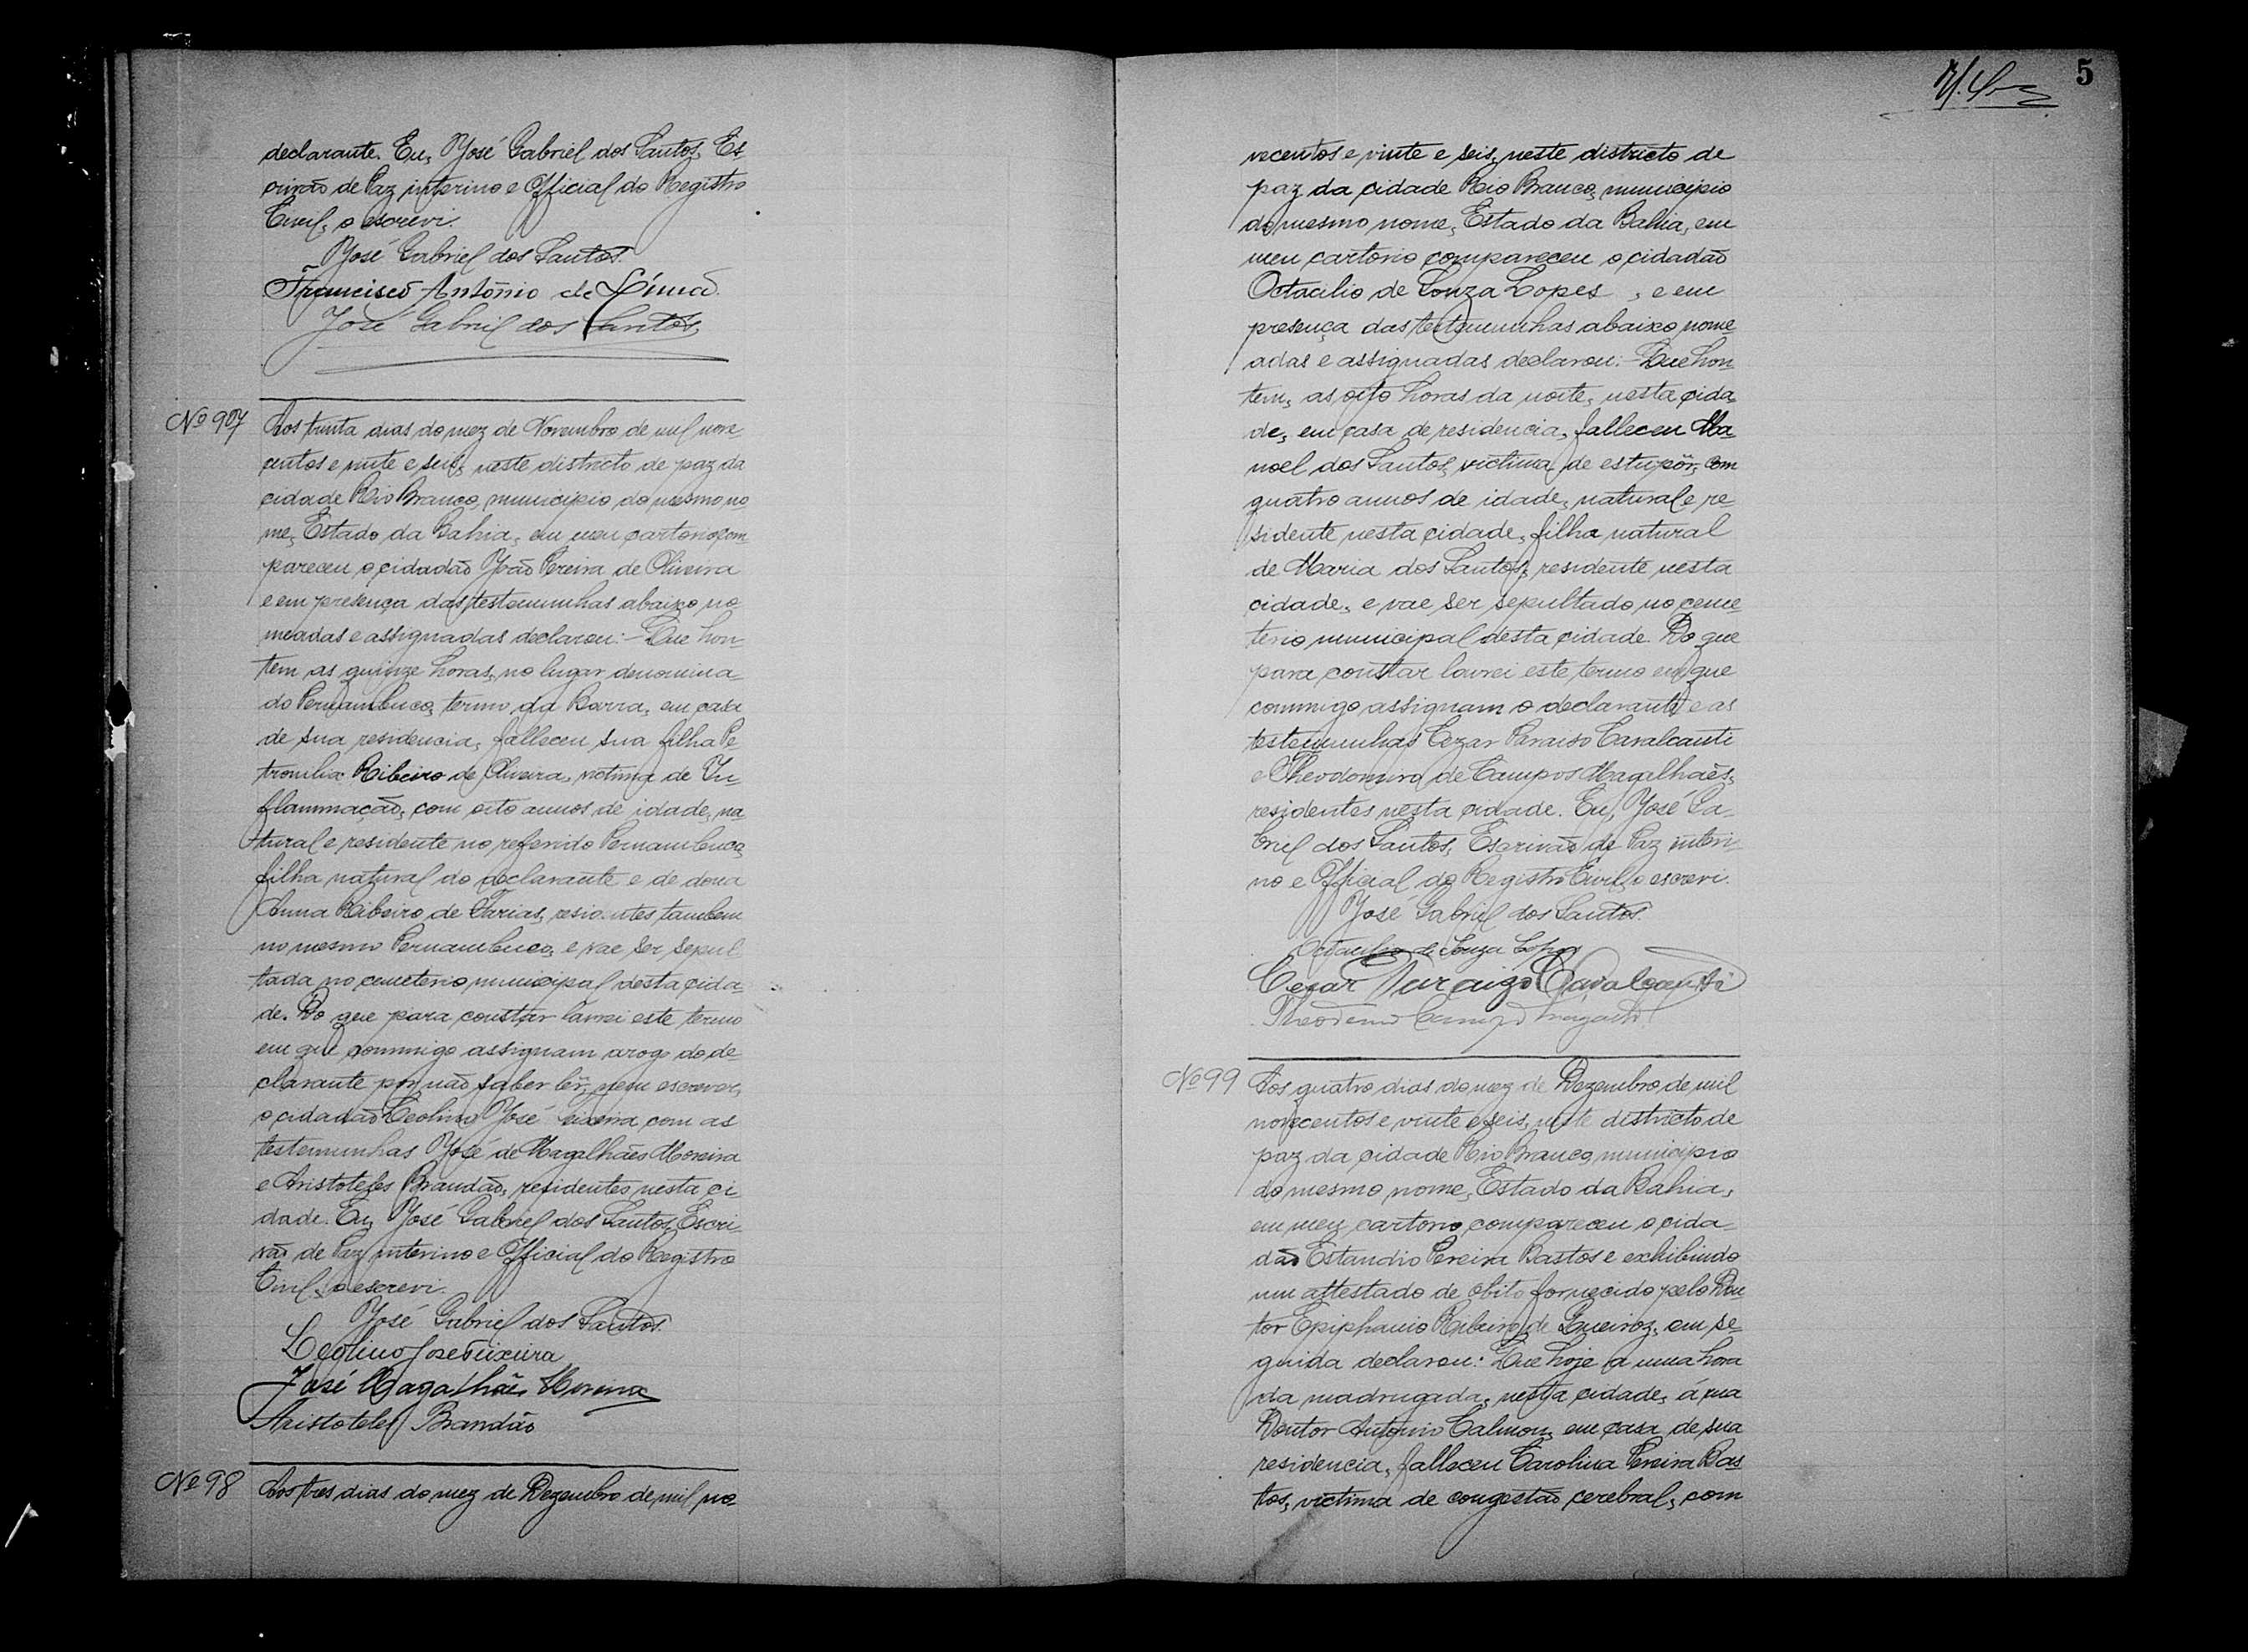 declarante. Eu, José Gabriel dos Santos, Es-
crivão de Paz interino e Official do Registro
Civil, o escrevi.
José Gabriel dos Santos.
Francisco Antônio de Lima.
José Gabriel dos Santos,
Nº 97
Aos trinta dias do mez de Novembro de mil nove
centos e vinte e seis, neste districto de paz da
cidade Rio Branco, municipio do mesmo no
me, Estado da Bahia, em meu cartorio com-
pareceu o cidadão João Pereira de Oliveira
e em presença das testemunhas abaixo no
meadas e assignadas declarou:- Que hon-
tem as quinze horas, no lugar denomina-
do Pernambuco, termo da Barra, em casa
de sua residencia, falleceu sua filha Pe-
tronilia Ribeiro de Oliveira, victima de In-
flammação, com oito annos de idade, na-
tural e residente no referido Pernambuco,
filha natural do declarante e de dona
Anna Ribeiro de Farias, residentes tambem
no mesmo Pernambuco, e vae ser sepul
tada no cemeterio municipal desta cida-
de. Do que para constar lavrei este termo
em que commigo assignam arogo do de-
clarante por não saber lêr, nem escrever,
o cidadão Leolino José Teixeira com as
testemunhas José de Magalhães Moreira
e Aristoteles Brandão, residentes nesta ci
dade. Eu, José Gabriel dos Santos, Escri-
vão de Paz interino e Official do Registro
Civil, o escrevi.
José Gabriel dos Santos.
Leolino José Teixeira
José Magalhães Moreira
Aristoteles Brandão
Nº 98
Aos tres dias do mez de Dezembro de mil no
5
vecentos e vinte e seis, neste districto de
paz da cidade Rio Branco, municipio
do mesmo nome, Estado da Bahia, em
meu cartorio compareceu o cidadão
Octacilio de Souza Lopes, e em
presença das testemunhas abaixo nome-
adas e assignadas declarou:- Que hon-
tem, as oito horas da noite, nesta cida-
de, em casa de residencia, falleceu Ma-
noel dos Santos, victima de estupôr, com
quatro annos de idade, natural e re-
sidente nesta cidade, filha natural
de Maria dos Santos, residente nesta
cidade, e vae ser sepultado no ceme-
terio municipal desta cidade. Do que
para constar lavrei este termo em que
commigo assignam o declarante e as
testemunhas Cezar Paraiso Cavalcanti
e Theodomiro de Campos Magalhães,
residentes nesta cidade. Eu, José Ga-
briel dos Santos, Escrivão de Paz interi-
no e Official do Registro Civil, o escrevi.
José Gabriel dos Santos.
Octacilio de Souza Lopes
Cezar Paraizo Cavalcanti
Nº 99
Aos quatro dias do mez de Dezembro de mil
novecentos e vinte e seis, neste districto de
paz da cidade Rio Branco, municipio
do mesmo nome, Estado da Bahia,
em meu cartorio compareceu o cida-
dão Estandio Pereira Bastos e exhibindo
um attestado de obito fornecido pelo Dou
tor Epiphanio Ribeiro de Queiroz, em se-
guida declarou: Que hoje a uma hora
da madrugada, nesta cidade, á rua
Doutor Antonio Calmon, em casa de sua
residencia, falleceu Carolina Pereira Bas
tos, victima de congestão cerebral, com